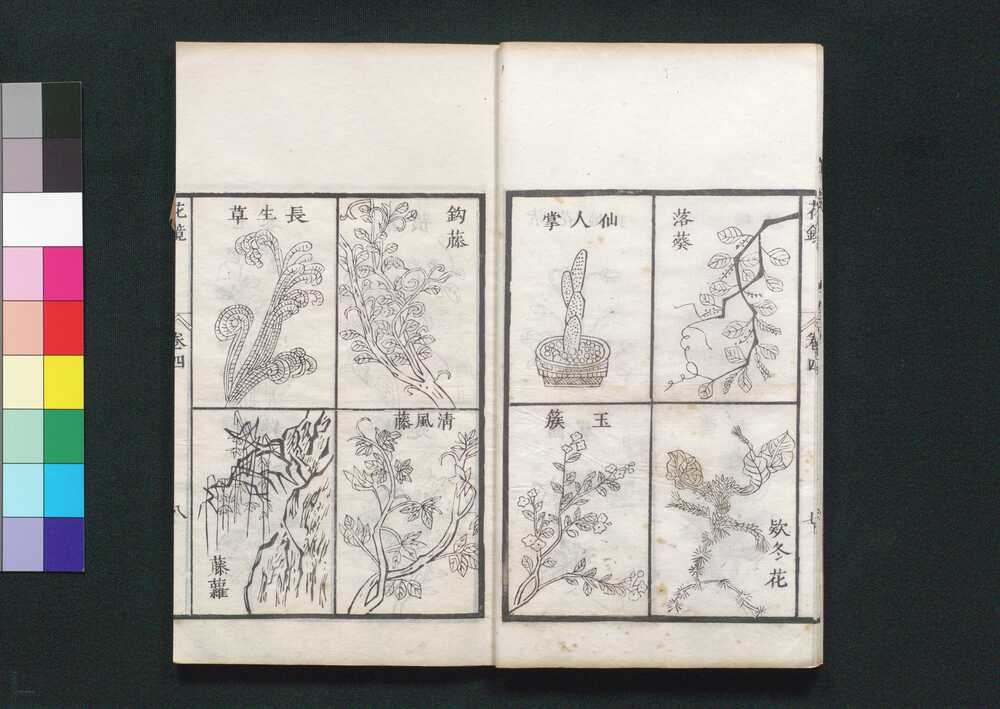 花鏡
卷四
七
落葵
仙人掌
欵冬花
玉簇
鈎藤
長生草
清風藤
藤蘿
花鏡
卷四
八